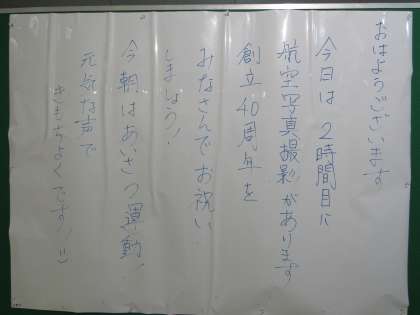 おはようございます
今日は2時間目に
航空写真撮影があります
創立40周年を
みなさんでお祝い
しましょう!
今朝はあいさつ運動
元気な声で
きもちよくです!!